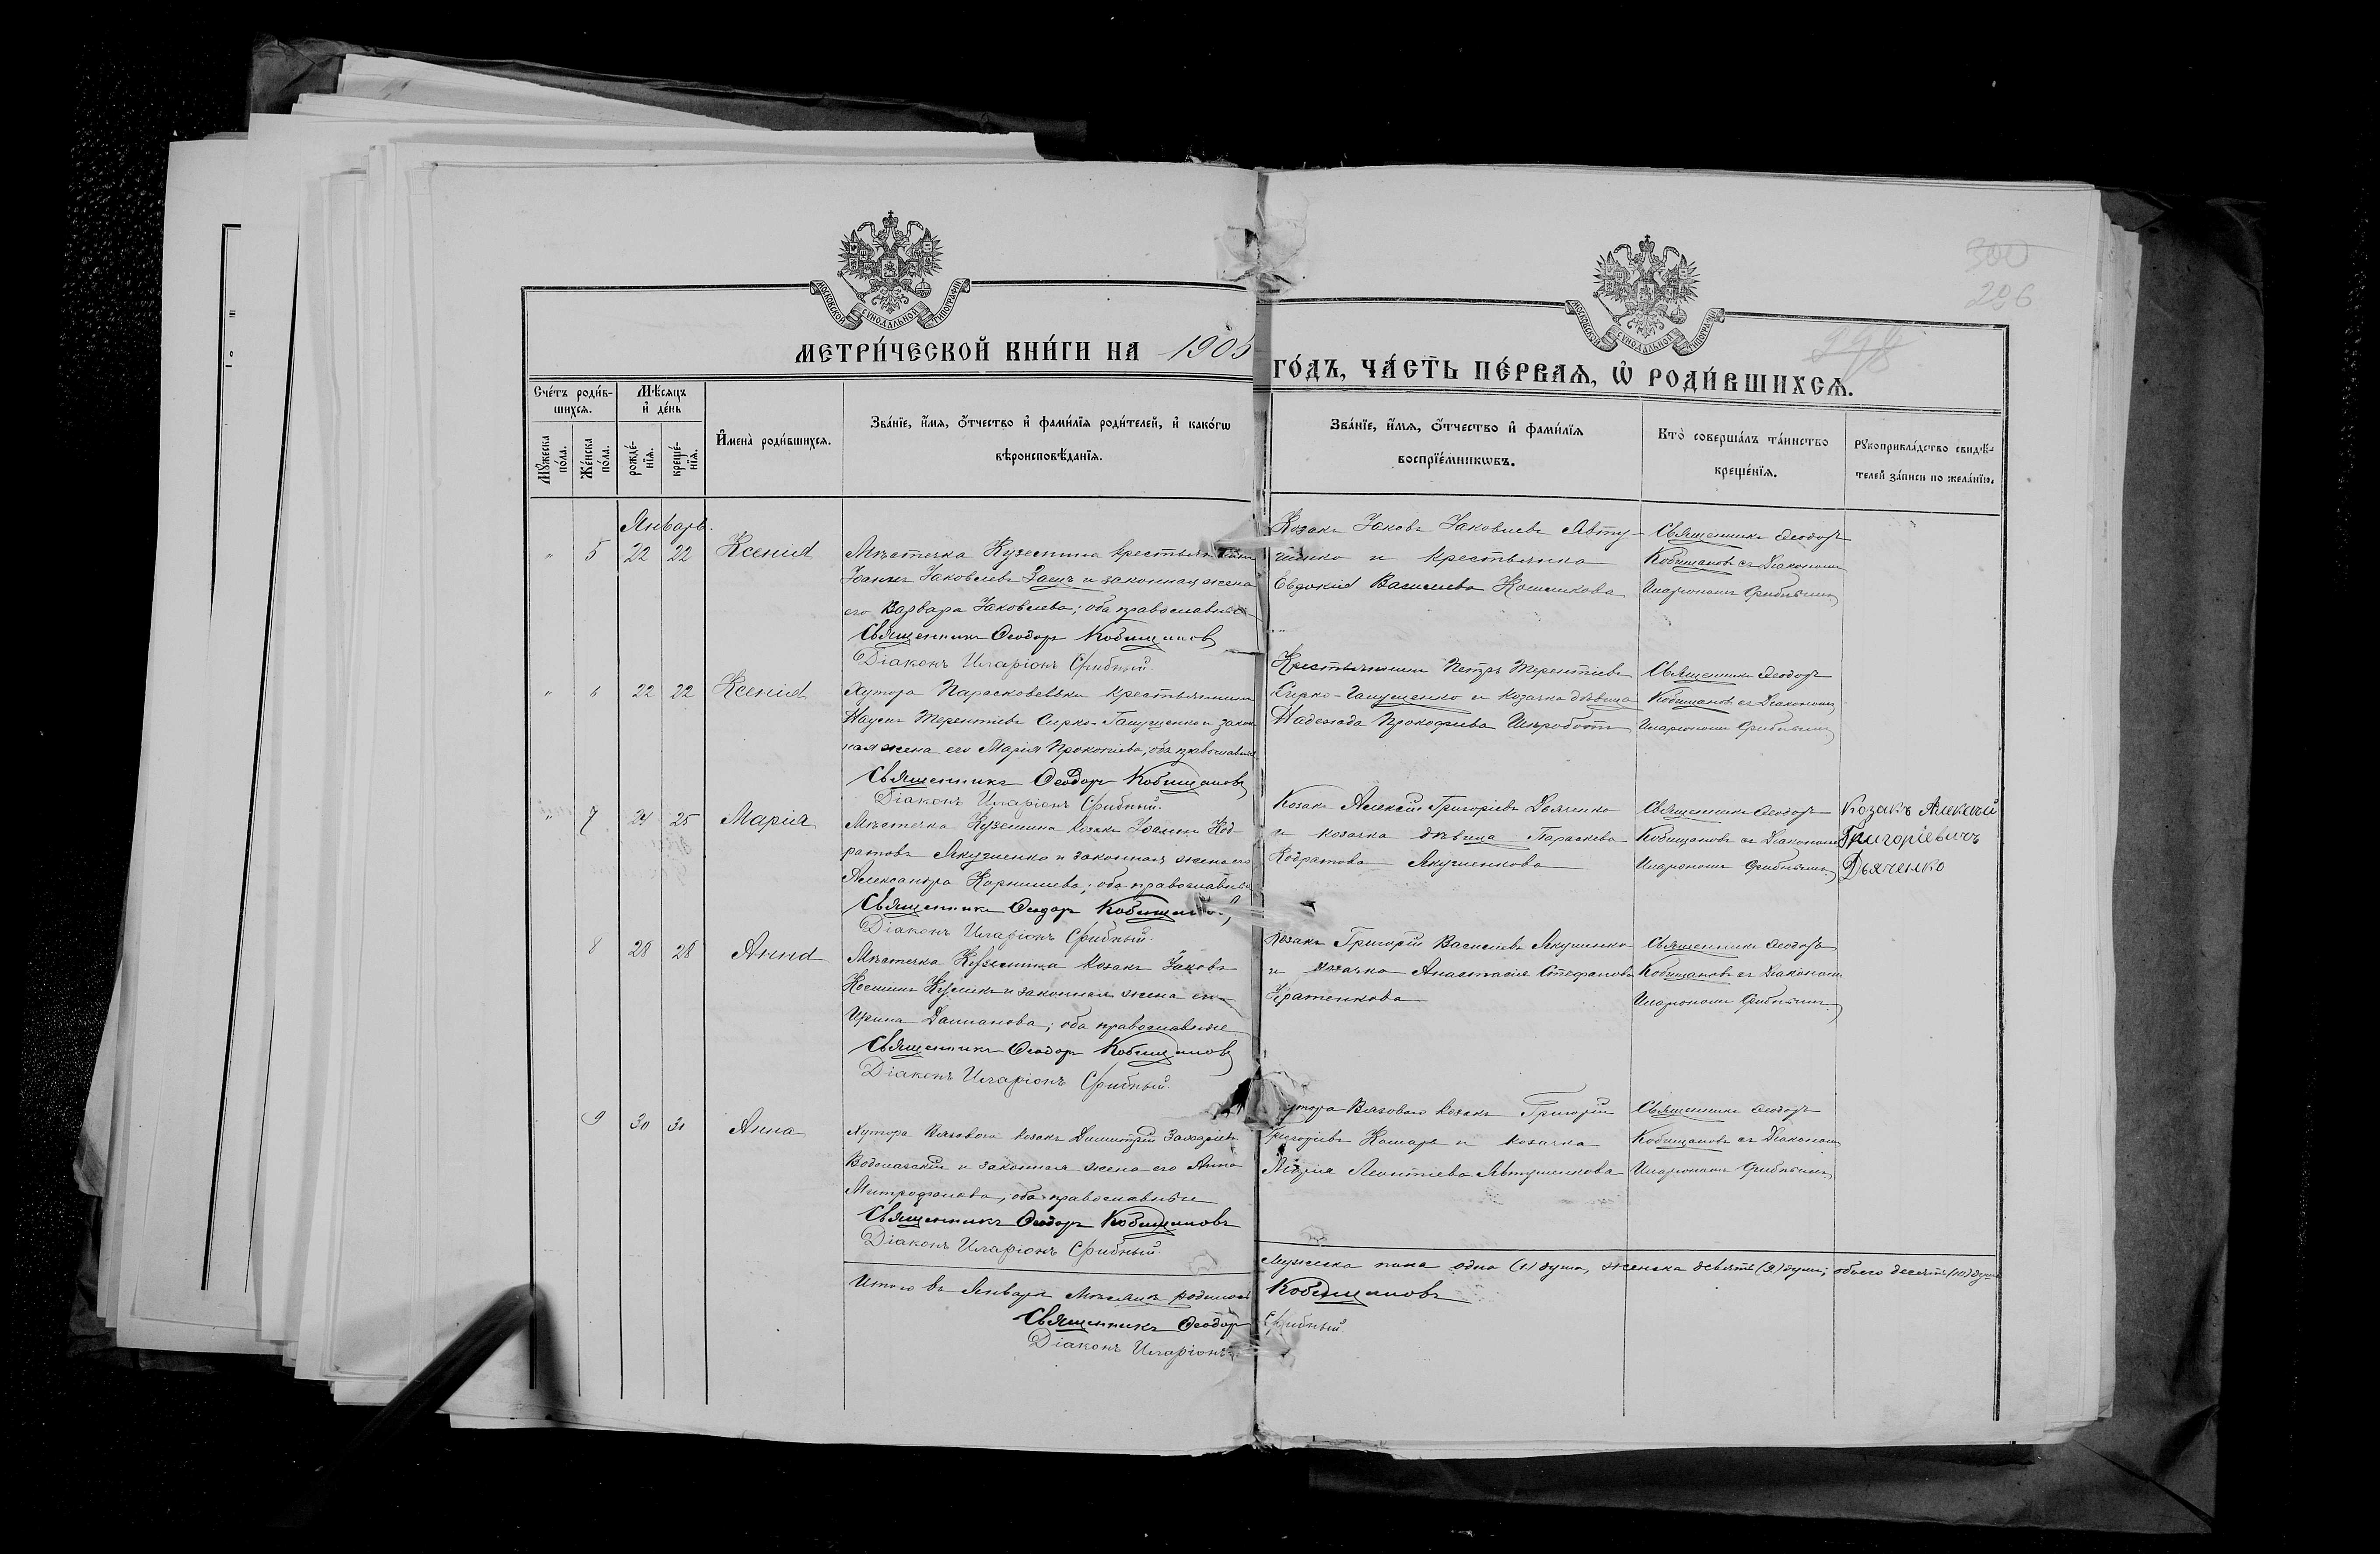 МОСКОВСКОЙ СѴНОДАЛЬНОЙ ТИПОГРАФІИ
МОСКОВСКОЙ СѴНОДАЛЬНОЙ ТИПОГРАФІИ
300
296
298
МЕТРИ́ЧЕСКОЙ КНИ́ГИ НА 1905
ГО́ДЪ, ЧА́СТЬ ПЕ́РВАѦ, Ѡ҆ РОДИ́ВШИХСѦ.
Сче́тъ роди́в-
шихсѧ.
Мꙋ́жеска
по́ла.
Же́нска
по́ла.
Мѣ́сѧцъ
и҆ де́нь
рожде́-
нїѧ.
креще́-
нїѧ.
И҆мена̀ роди́вшихсѧ.
Зва́нїе, и҆́мѧ, ѻ҆́тчество и҆ фами́лїѧ роди́телей, и҆ како́гѡ
вѣроисповѣ́данїѧ.
Зва́нїе, и҆́мѧ, ѻ҆́тчество и҆ фами́лїѧ
воспрїе́мникѡвъ.
Кто̀ соверша́лъ та́инство
креще́нїѧ.
Рꙋкоприкла́дство свидѣ́-
телей за́писи по жела́нїю.
Январь.
" 5 22 22 Ксенія
Мѣстечка Куземина крестьянинъ
Іоаннъ Іаковлевъ Заецъ и законная жена
его Варвара Іаковлева; оба православные
Священникъ Ѳеодоръ Кобищановъ
Діаконъ Иларіонъ Срибный.
Козакъ Іаковъ Іаковлевъ Явту-
шенко и крестьянка
Евдокія Васильева Кошикова
Священникъ Ѳеодоръ
Кобищановъ съ Діакономъ
Иларіономъ Срибнымъ
" 6 22 22 Ксенія
Хутора Парасковеевки крестьянинъ
Наумъ Терентіевъ Сирко-Галущенко и закон-
ная жена его Марія Прокопіева; оба православные
Священникъ Ѳеодоръ Кобищановъ
Діаконъ Иларіонъ Срибный.
Крестьянинъ Петръ Терентіевъ
Сирко-Галущенко и козачка дѣвица
Надежда Прокофіева
Священникъ Ѳеодоръ
Кобищановъ съ Діакономъ
Иларіономъ Срибнымъ
" 7 24 25 Марія
Мѣстечка Куземина козакъ Іоаннъ Код-
ратовъ Якушенко и законная жена его
Александра Корнилиева; оба православные
Священникъ Ѳеодоръ Кобищановъ
Діаконъ Иларіонъ Срибный.
Козакъ Алексій Григоріевъ Дьяченко
и козачка дѣвица Параскева
Кодратова Якушенкова
Священникъ Ѳеодоръ
Кобищановъ съ Діакономъ
Иларіономъ Срибнымъ
Козакъ Алексѣй
Григоріевичъ
Дьяченко
8 28 28 Анна
Мѣстечка Куземина козакъ Іаковъ
Косминъ Куликъ и законная жена его
Ирина Даміанова; оба православные
Священникъ Ѳеодоръ Кобищановъ
Діаконъ Иларіонъ Срибный.
Козакъ Григорій Василіевъ Якушенко
и козачка Анастасія Стефанова
Кратенкова
Священникъ Ѳеодоръ
Кобищановъ съ Діакономъ
Иларіономъ Срибнымъ
9 30 30 Анна
Хутора Вязоваго козакъ Димитрій Захаріевъ
Водолазскій и законная жена его Анна
Митрофанова; оба православные
Священникъ Ѳеодоръ Кобищановъ
Діаконъ Иларіонъ Срибный.
Хутора Вязоваго козакъ Григорій
Григоріевъ Комаръ и козачка
Марія Леонтіева Явтушенкова
Священникъ Ѳеодоръ
Кобищановъ съ Діакономъ
Иларіономъ Срибнымъ
Итого въ Январѣ мѣсяцѣ родилось
мужеска пола одна (1) душа, женска девять (9) душъ; обоего десять (10) душъ
Священникъ Ѳеодоръ Кобищановъ
Діаконъ Иларіонъ Срибный.